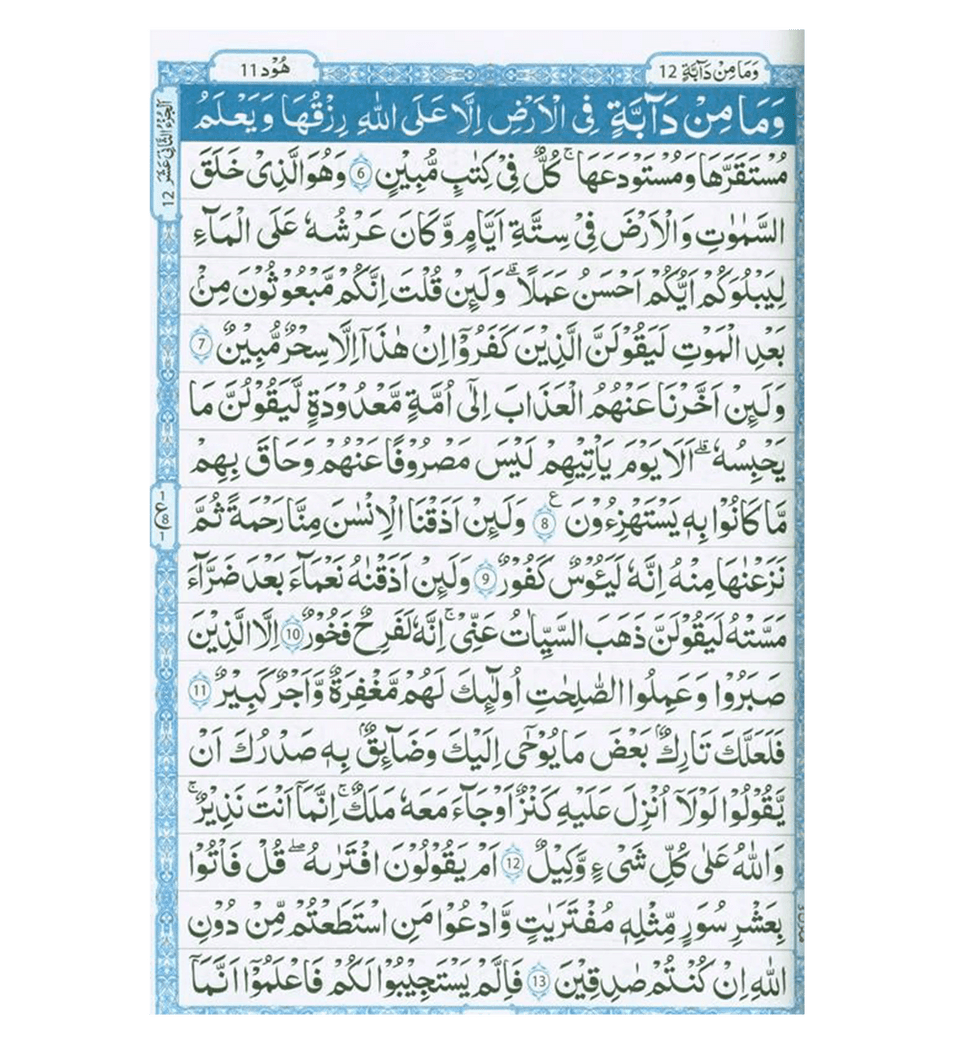 وَمَا مِنْ دَآبَّةٍ 12
هُوْد 11
اَلْجُزْءُ الثَّانِیْ عَشَرَ 12
وَمَا مِنْ دَآبَّةٍ فِی الْاَرْضِ اِلَّا عَلَی اللّٰهِ رِزْقُهَا وَيَعْلَمُ
مُسْتَقَرَّهَا وَمُسْتَوْدَعَهَا ۚ كُلٌّ فِیْ كِتٰبٍ مُّبِيْنٍ 6 وَهُوَ الَّذِیْ خَلَقَ
السَّمٰوٰتِ وَالْاَرْضَ فِیْ سِتَّةِ اَيَّامٍ وَّكَانَ عَرْشُهٗ عَلَی الْمَآءِ
لِيَبْلُوَكُمْ اَيُّكُمْ اَحْسَنُ عَمَلًا ۗ وَلَئِنْ قُلْتَ اِنَّكُمْ مَّبْعُوْثُوْنَ مِنْۢ
بَعْدِ الْمَوْتِ لَيَقُوْلَنَّ الَّذِيْنَ كَفَرُوْۤا اِنْ هٰذَاۤ اِلَّا سِحْرٌ مُّبِيْنٌ 7
وَلَئِنْ اَخَّرْنَا عَنْهُمُ الْعَذَابَ اِلٰۤی اُمَّةٍ مَّعْدُوْدَةٍ لَّيَقُوْلُنَّ مَا
يَحْبِسُهٗ ۗ اَلَا يَوْمَ يَاْتِيْهِمْ لَيْسَ مَصْرُوْفًا عَنْهُمْ وَحَاقَ بِهِمْ
مَّا كَانُوْا بِهٖ يَسْتَهْزِءُوْنَ 8 ع وَلَئِنْ اَذَقْنَا الْاِنْسٰنَ مِنَّا رَحْمَةً ثُمَّ
1 ع 8 1
نَزَعْنٰهَا مِنْهُ اِنَّهٗ لَيَئُوْسٌ كَفُوْرٌ 9 وَلَئِنْ اَذَقْنٰهُ نَعْمَآءَ بَعْدَ ضَرَّآءَ
مَسَّتْهُ لَيَقُوْلَنَّ ذَهَبَ السَّيِّاٰتُ عَنِّیْ ۚ اِنَّهٗ لَفَرِحٌ فَخُوْرٌ 10 اِلَّا الَّذِيْنَ
صَبَرُوْا وَعَمِلُوا الصّٰلِحٰتِ اُولٰٓئِكَ لَهُمْ مَّغْفِرَةٌ وَّاَجْرٌ كَبِيْرٌ 11
فَلَعَلَّكَ تَارِكٌۢ بَعْضَ مَا يُوْحٰۤی اِلَيْكَ وَضَآئِقٌۢ بِهٖ صَدْرُكَ اَنْ
يَّقُوْلُوْا لَوْلَاۤ اُنْزِلَ عَلَيْهِ كَنْزٌ اَوْ جَآءَ مَعَهٗ مَلَكٌ ۚ اِنَّمَاۤ اَنْتَ نَذِيْرٌ ۚ
وَاللّٰهُ عَلٰی كُلِّ شَیْءٍ وَّكِيْلٌ 12 اَمْ يَقُوْلُوْنَ افْتَرٰىهُ ۖ قُلْ فَاْتُوْا
بِعَشْرِ سُوَرٍ مِّثْلِهٖ مُفْتَرَيٰتٍ وَّادْعُوْا مَنِ اسْتَطَعْتُمْ مِّنْ دُوْنِ
اللّٰهِ اِنْ كُنْتُمْ صٰدِقِيْنَ 13 فَاِلَّمْ يَسْتَجِيْبُوْا لَكُمْ فَاعْلَمُوْۤا اَنَّمَاۤ